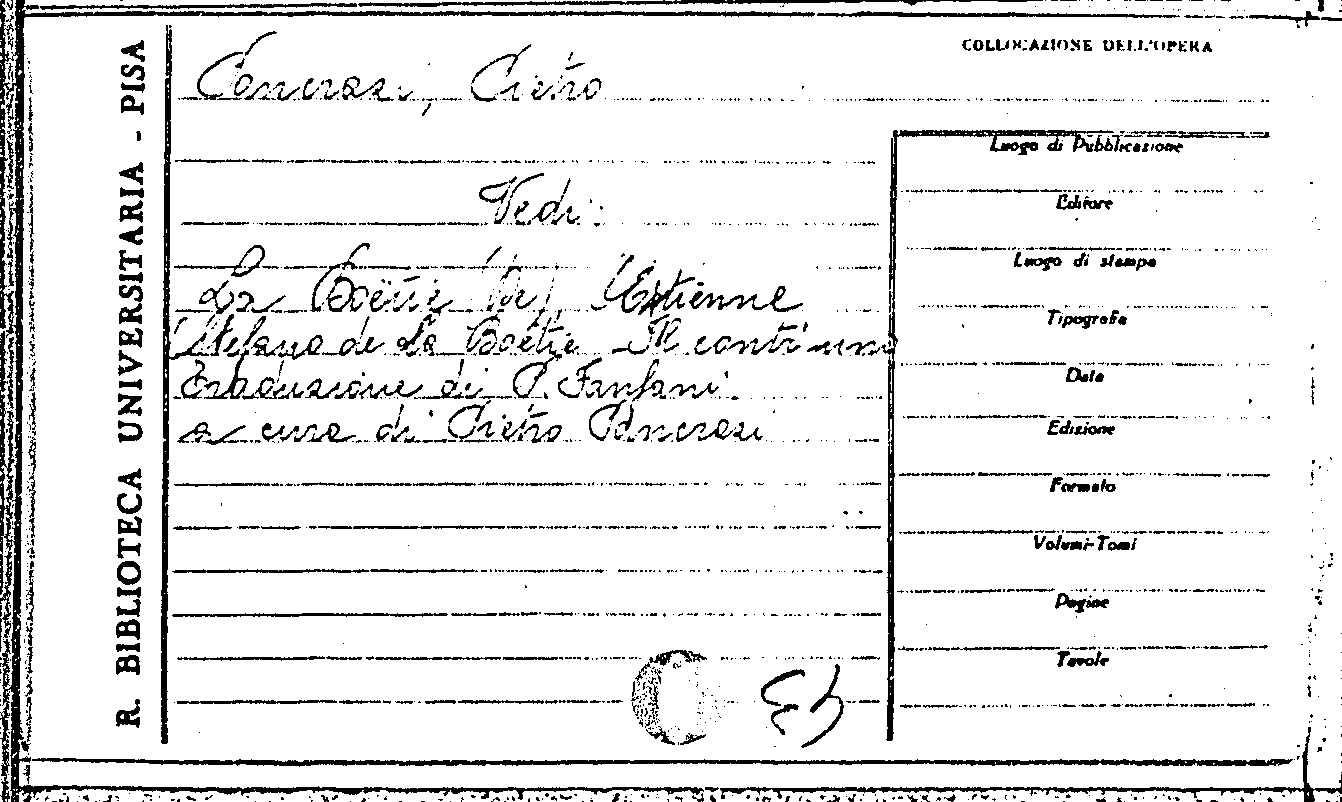 R. BIBLIOTECA UNIVERSITARIA - PISA
COLLOCAZIONE DELL'OPERA
Pancrazi, Pietro
Vedi:
La Boëtie (de), Estienne
Stefano de la Boëtie - Il contr'uno
Traduzione di P. Fanfani.
a cura di Pietro Pancrazi
Luogo di Pubblicazione
Editore
Luogo di stampa
Tipografia
Data
Edizione
Formato
Volumi-Tomi
Pagine
Tavole